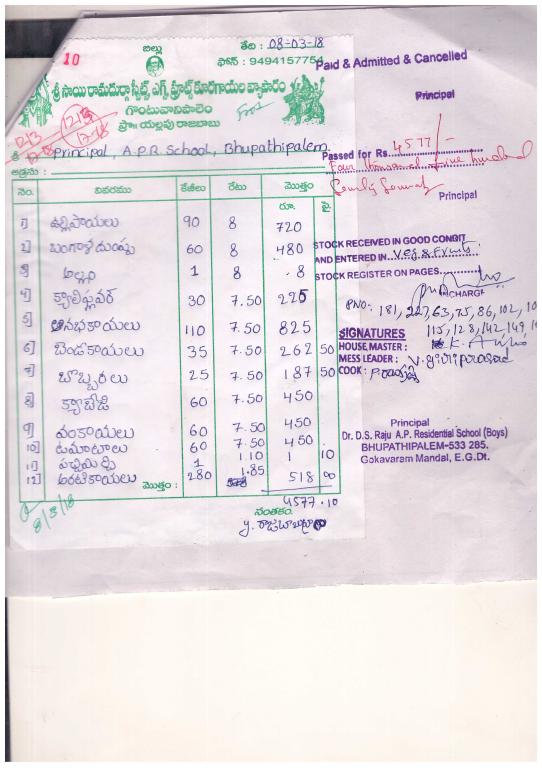 10
బిల్లు
తేది : 08-03-18
ఫోన్ : 9494157754
శ్రీ సాయి రామదుర్గా స్వీట్స్ ఎగ్స్ ఫ్రూట్స్ కూరగాయల వ్యాపారం
గొంటువానిపాలెం
ప్రొ॥ యల్లపు రాజబాబు
శ్రీ Principal, A.P.R. School, Bhupathipalem
అడ్రసు :
నెం. వివరము కేజీలు రేటు మొత్తం
రూ. పై
1) ఉల్లిపాయలు 90 8 720
2) బంగాళదుంప 60 8 480
3) అల్లం 1 8 8
4) క్యాలిఫ్లవర్ 30 7.50 225
5) ఆనభకాయలు 110 7.50 825
6) బెండకాయలు 35 7.50 262 50
7) బొబ్బరలు 25 7.50 187 50
8) క్యాబేజి 60 7.50 450
9) వంకాయలు 60 7.50 450
10) టమాటాలు 60 7.50 450
11) పచ్చిమిర్చి 1 1.10 1 10
12) అరటికాయలు 280 1.85 518 00
మొత్తం :
4577.10
సంతకం
8/3/18
Paid & Admitted & Cancelled
Principal
Passed for Rs. 4577/-
Four thousand five hundred
Seventy Seven
Principal
STOCK RECEIVED IN GOOD CONDIT
AND ENTERED IN Veg & Fruits
STOCK REGISTER ON PAGES
INCHARGE
PNO: 181, 227, 63, 75, 86, 102, 10
115, 128, 142, 149, 1
SIGNATURES
HOUSE MASTER :
MESS LEADER : V. giriprasad
COOK :
Principal
Dr. D.S. Raju A.P. Residential School (Boys)
BHUPATHIPALEM-533 285.
Gokavaram Mandal, E.G.Dt.